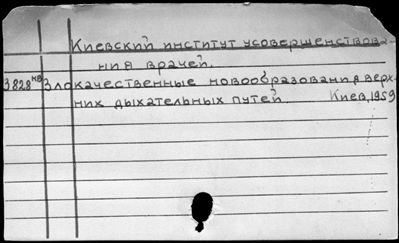 Киевский институт усовершенствова-
ния врачей.
3828 кв Злокачественные новообразования верх-
них дыхательных путей. Киев, 1959